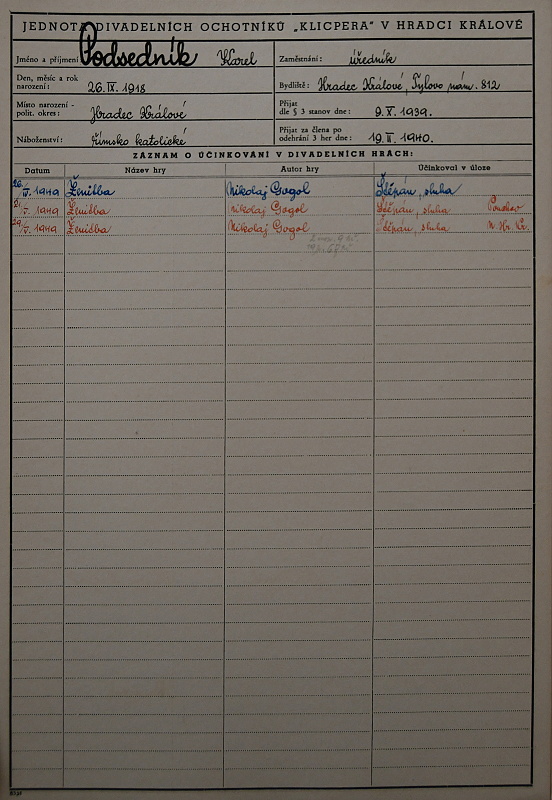 JEDNOTA DIVADELNÍCH OCHOTNÍKŮ „KLICPERA" V HRADCI KRÁLOVÉ
Jméno a příjmení Podsedník Karel
Zaměstnání: úředník
Den, měsíc a rok
narození: 26. IX. 1918
Bydliště: Hradec Králové, Tylovo nám. 812
Místo narození -
polit. okres: Hradec Králové
Přijat
dle § 3 stanov dne: 9. X. 1939.
Náboženství: římsko katolické
Přijat za člena po
odehrání 3 her dne: 19. II. 1940.
ZÁZNAM O ÚČINKOVÁNÍ V DIVADELNÍCH HRÁCH:
Datum Název hry Autor hry Účinkoval v úloze
1949 Ženidba Nikolaj Gogol Štěpán, sluha
1949 Ženidba Nikolaj Gogol Štěpán, sluha
29/5. 1949 Ženidba Nikolaj Gogol Štěpán, sluha N. Hr. Kr.